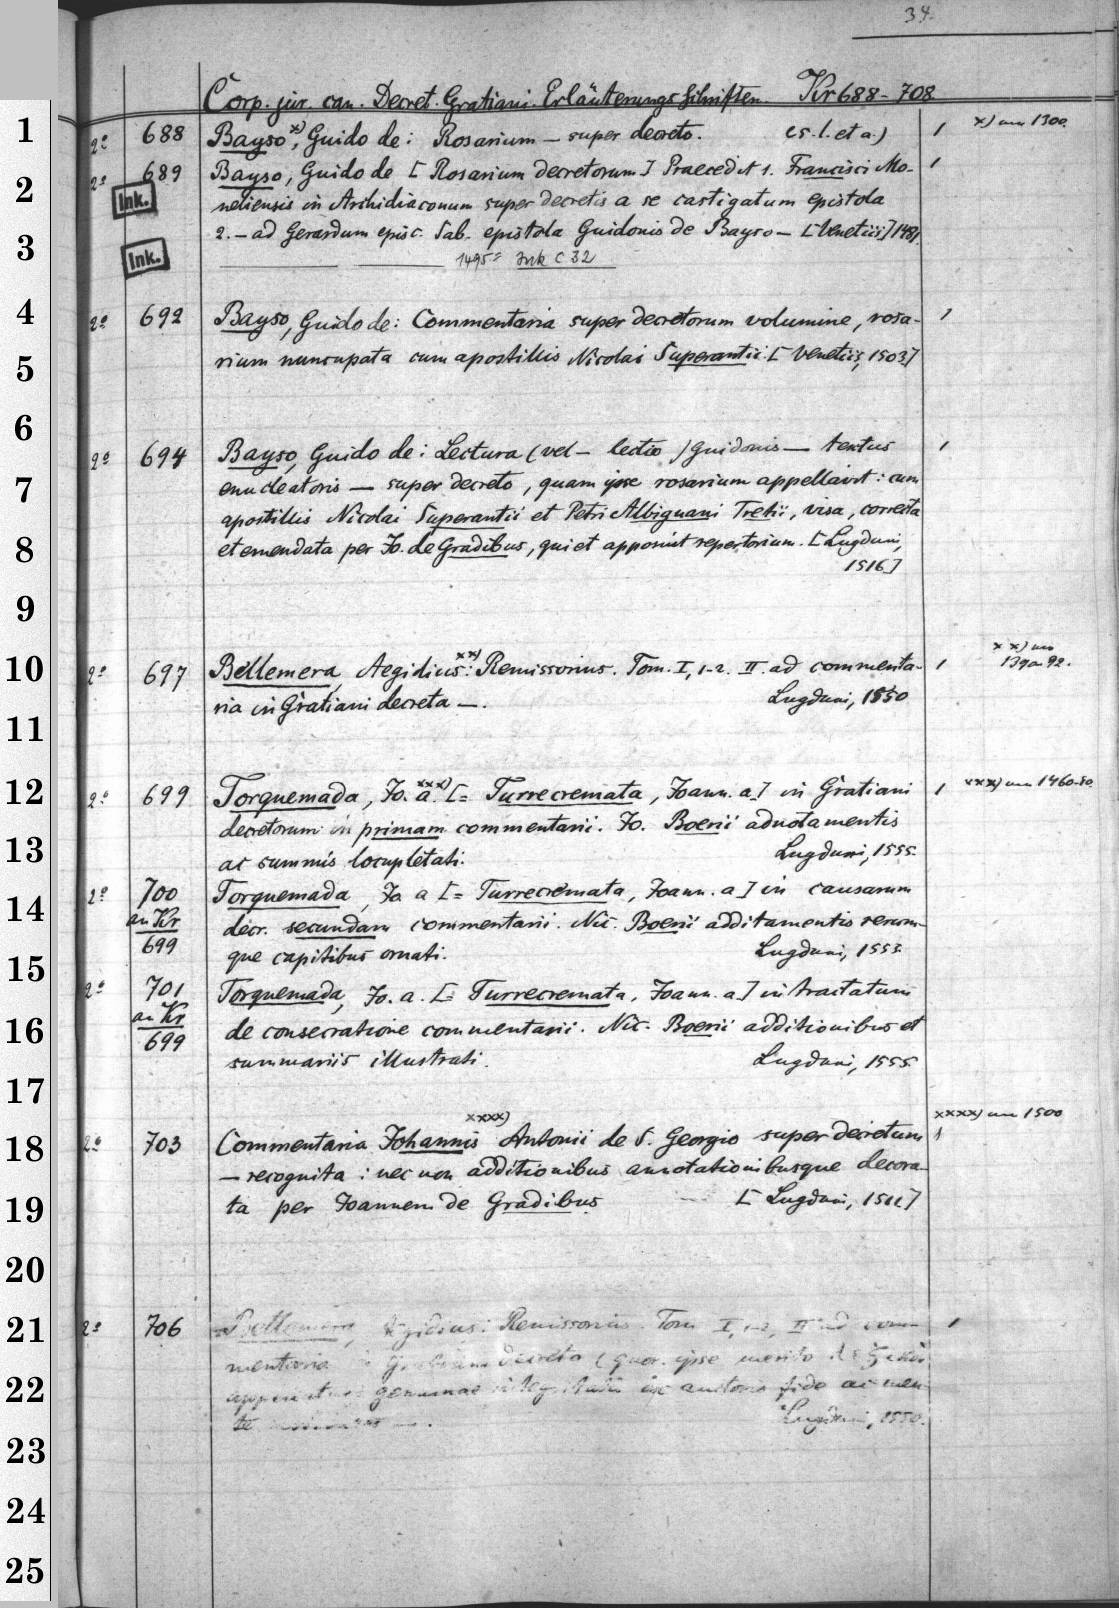 34.
Corp. jur. can. Decret. Gratiani. Erläuterungsschriften. Kr 688 - 708
1
2° 688 Bayso x), Guido de: Rosarium — super decreto. (s. l. et a.) 1 x) um 1300.
2° 689 Bayso, Guido de [Rosarium decretorum] Praecedit 1. Francisci Mo- 1
2
Ink. neliensis in Archidiaconum super decretis a se castigatum epistola
2. — ad Gerardum episc. Sab. epistola Guidonis de Bayso — [Venetiis] 1481.
3
Ink. 1495 = Ink C 32
4
2° 692 Bayso, Guido de: Commentaria super decretorum volumine, rosa- 1
5
rium nuncupata cum apostillis Nicolai Superantii. [Venetiis, 1503]
6
2° 694 Bayso, Guido de: Lectura (vel — lectio) Guidonis — textus 1
7
enucleatoris — super decreto, quam ipse rosarium appellavit: cum
apostillis Nicolai Superantii et Petri Albignani Tretii, visa, correcta
8
et emendata per Jo. de Gradibus, qui et apposuit repertorium. [Lugduni,
1516]
9
10
2° 697 Bellemera, Aegidius xx): Remissorius. Tom. I, 1-2. II ad commenta- 1 xx) um
1390-92.
ria in Gratiani decreta —. Lugduni, 1550
11
12
2° 699 Torquemada, Jo. a xxx) [= Turrecremata, Joann. a] in Gratiani 1 xxx) um 1460-80.
decretorum in primam commentarii. Jo. Boerii adnotamentis
13
ac summis locupletati. Lugduni, 1555.
2° 700 Torquemada, Jo a [= Turrecremata, Joann. a] in causarum
14
an Kr decr. secundam commentarii. Nic. Boerii additamentis rerum-
699 que capitibus ornati. Lugduni, 1553.
15
2° 701 Torquemada, Jo. a. [= Turrecremata, Joann. a] in tractatum
an Kr
16
de consecratione commentarii. Nic. Boerii additionibus et
699
summariis illustrati. Lugduni, 1555.
17
xxxx) xxxx) um 1500
18
2° 703 Commentaria Johannis Antonii de S. Georgio super decretum 1
— recognita: nec non additionibus annotationibusque decora-
19
ta per Joannem de Gradibus [Lugduni, 1511]
20
21
2° 706 Bellemera, Egidius: Remissorius. Tom I, 1-2, II ad com- 1
mentaria decreta (quor. ipse merito
22
genuinae fide ac men-
te Lugduni, 1550.
23
24
25